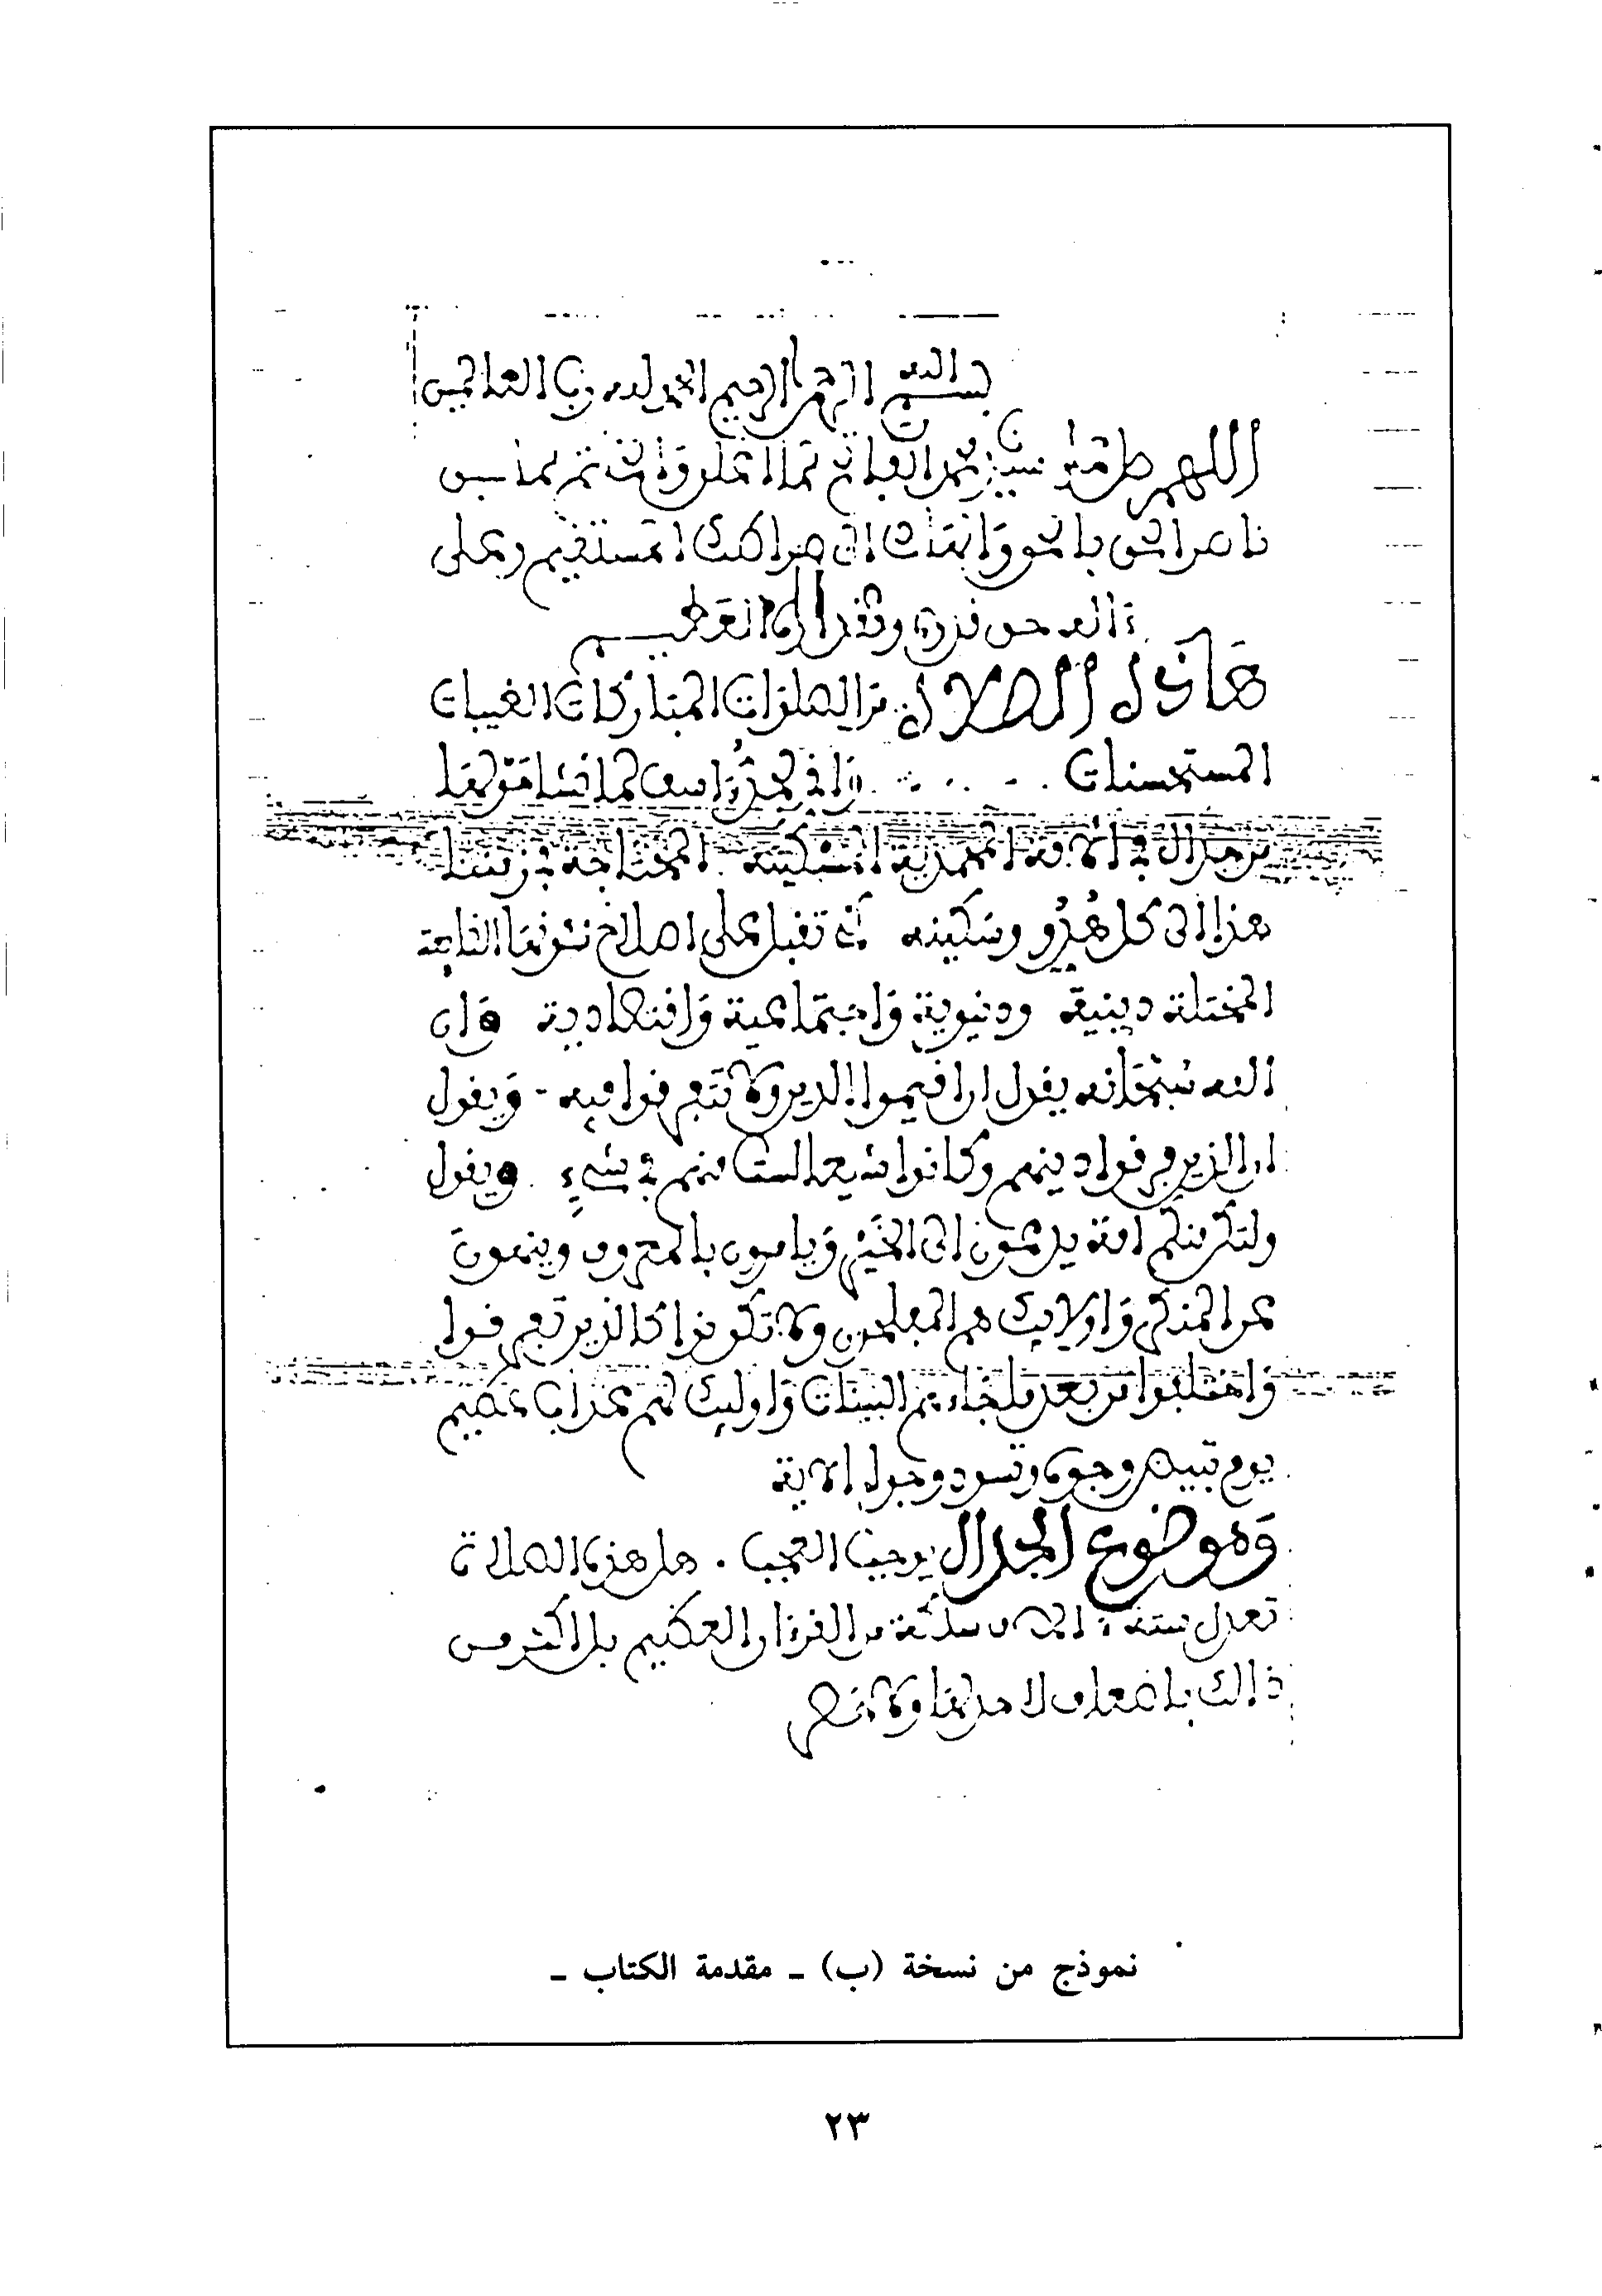 بسم الله الرحمن الرحيم الحمد لله رب العالمين
اللهم صل على سيدنا محمد الفاتح لما اغلق والخاتم لما سبق
ناصر الحق بالحق والهادي الى صراطك المستقيم وعلى
ءاله حق قدره ومقداره العظيم
هاذه الصلاة من الصلوات المباركات الطيبات
المستحسنات واني لجد ءاسف لما نشا حولها
من جدال في الامة المحمدية المسكينة المحتاجة في زمننا
هذا الى كل هدو وسكينه كي تقبل على اصلاح شئونها
المختلة دينية ودنيوية واجتماعية واقتصادية وان
الله سبحانه يقول ان اقيموا الدين ولا تتفرقوا فيه - ويقول
ان الذين فرقوا دينهم وكانوا شيعا لست منهم في شيء ويقول
ولتكن منكم امة يدعون الى الخير ويامرون بالمعروف وينهون
عن المنكر واولايك هم المفلحون ولا تكونوا كالذين تفرقوا
واختلفوا من بعد ما جاءهم البينات واوليك لهم عذاب عظيم
يوم تبيض وجوه وتسود وجوه الاية
وموضوع الجدال يوجب العجب . هل هذه الصلاة
تعدل ستة ءالاف سلكة من القرءان العظيم بل اكثر من
ذالك باضعاف لا حد لها ولا حصر
نموذج من نسخة (ب) ـ مقدمة الكتاب ـ
٢٣